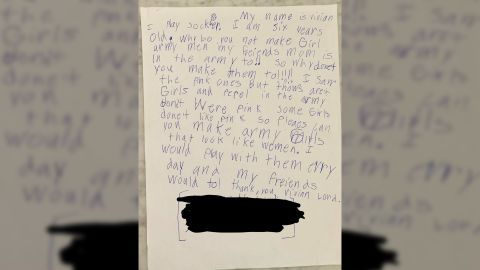 My name is vivian
I play socker. I am six years
Old. Why Do you not make Girl
army men my freinds mom is
in the army to!! so why dont
you make them to!!!! I saw
the pnk ones But thows aret
Girls and Pepel in the army
donet Were pink some Girls
donet like pink so Pleaes can
you make army Girls
that look like women. I
would Play with them evry
day and my freiends
would to! thank you, vivian Lord.